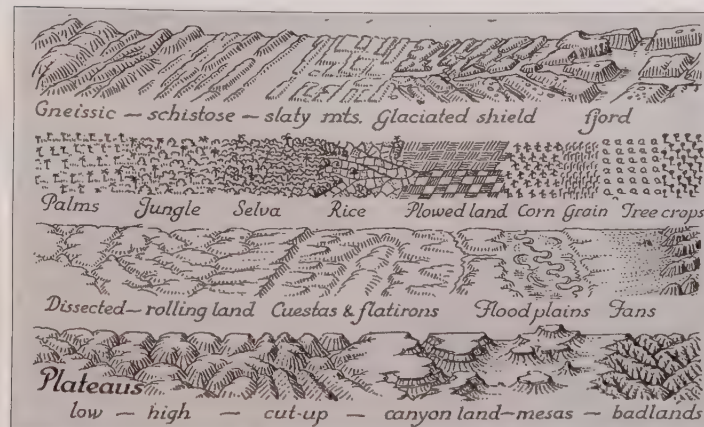 Gneissic — schistose — slaty mts. Glaciated shield fjord
Palms Jungle Selva Rice Plowed land Corn Grain Tree crops
Dissected — rolling land Cuestas & flatirons Flood plains Fans
Plateaus
low — high — cut-up — canyon land — mesas — badlands